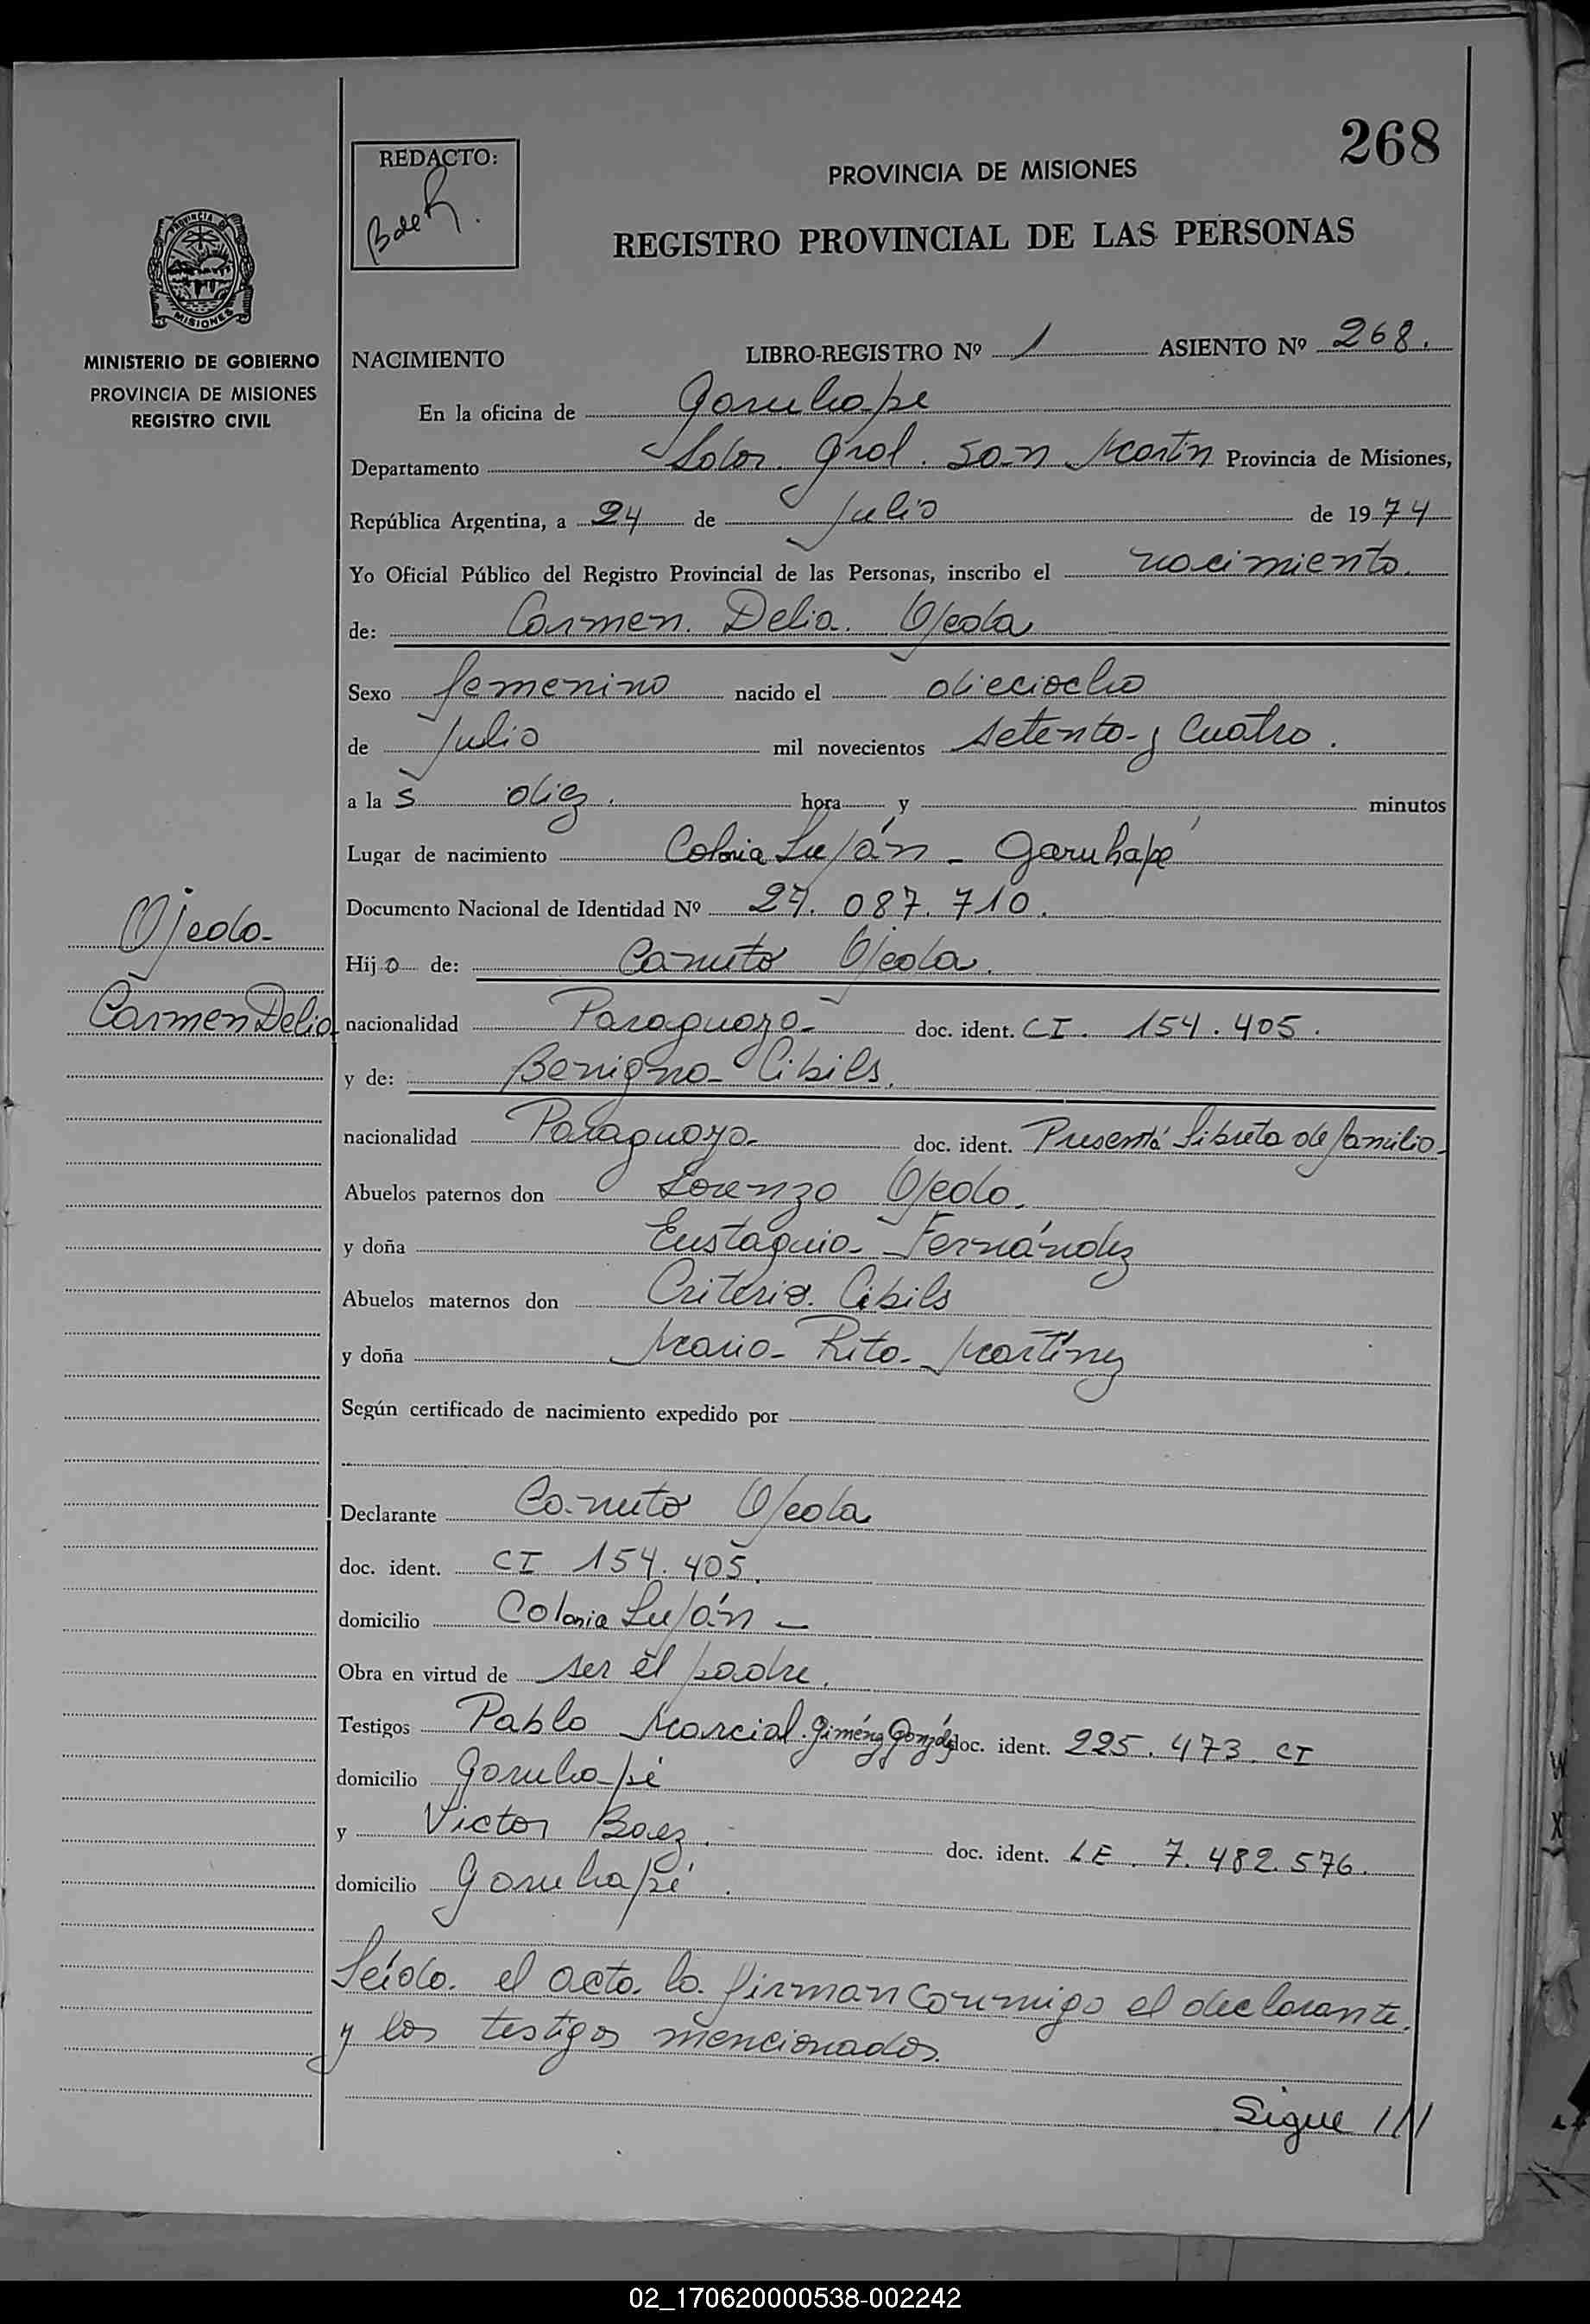 268
REDACTO:
B de R.
PROVINCIA DE MISIONES
REGISTRO PROVINCIAL DE LAS PERSONAS
PROVINCIA DE MISIONES
MINISTERIO DE GOBIERNO
PROVINCIA DE MISIONES
REGISTRO CIVIL
NACIMIENTO LIBRO-REGISTRO Nº 1 ASIENTO Nº 268.
En la oficina de Garuhape
Departamento Lbdor. Gral. San Martín Provincia de Misiones,
República Argentina, a 24 de Julio de 1974
Yo Oficial Público del Registro Provincial de las Personas, inscribo el nacimiento.
de: Carmen Delia Ojeda
Sexo femenino nacido el dieciocho
de Julio mil novecientos setenta y cuatro.
a las diez. hora y minutos
Lugar de nacimiento Colonia Luján - Garuhapé
Documento Nacional de Identidad Nº 24.087.710.
Hija de: Canuto Ojeda.
nacionalidad Paraguaya doc. ident. CI. 154.405.
y de: Benigna Cibils.
nacionalidad Paraguaya doc. ident. Presentá Libreta de familia
Abuelos paternos don Lorenzo Ojeda.
y doña Eustaquia Fernández
Abuelos maternos don Criterio Cibils
y doña María Rita Martínez
Según certificado de nacimiento expedido por
Declarante Canuto Ojeda
doc. ident. CI 154.405.
domicilio Colonia Luján -
Obra en virtud de ser el padre.
Testigos Pablo Marcial Giménez González doc. ident. 225.473. CI
domicilio Garuhapé
y Victor Baez. doc. ident. LE. 7.482.576.
domicilio Garuhapé.
Leída el acta la firman conmigo el declarante
y los testigos mencionados.
Sigue ///
Ojeda
Carmen Delia
02_170620000538-002242